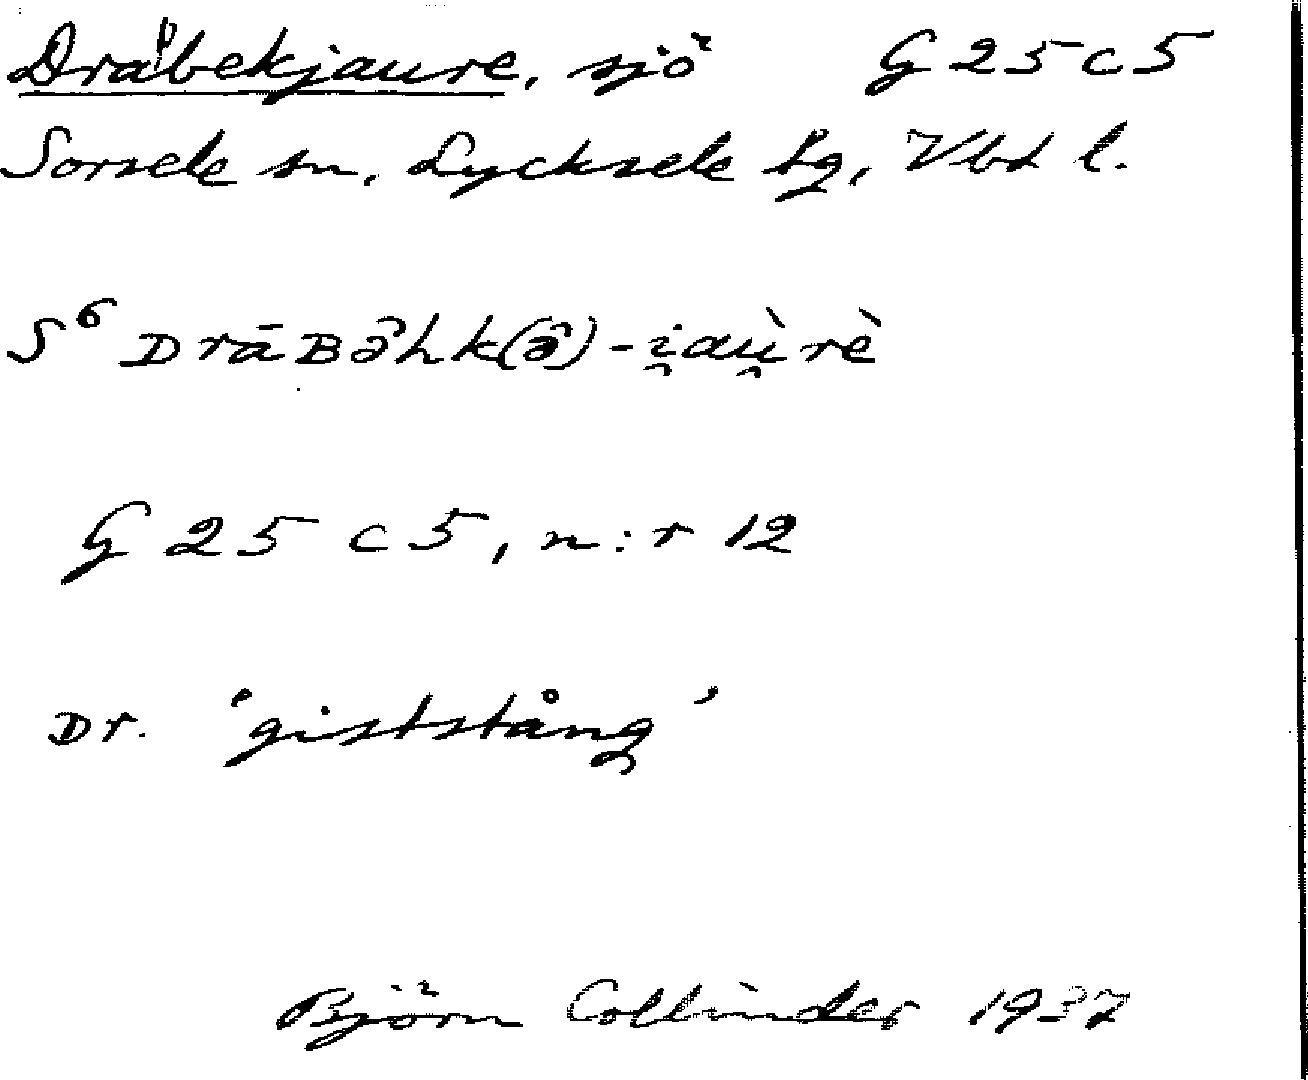 Dråbekjaure, sjö G 25 c 5
Sorsele sn, Lycksele lg, Vbt l.
S⁶ DrāBə̑hk(ə̑)-i̯aù̯rè
G 25 c 5, n:r 12
Dr. 'giststång'
Björn Collinder 1937